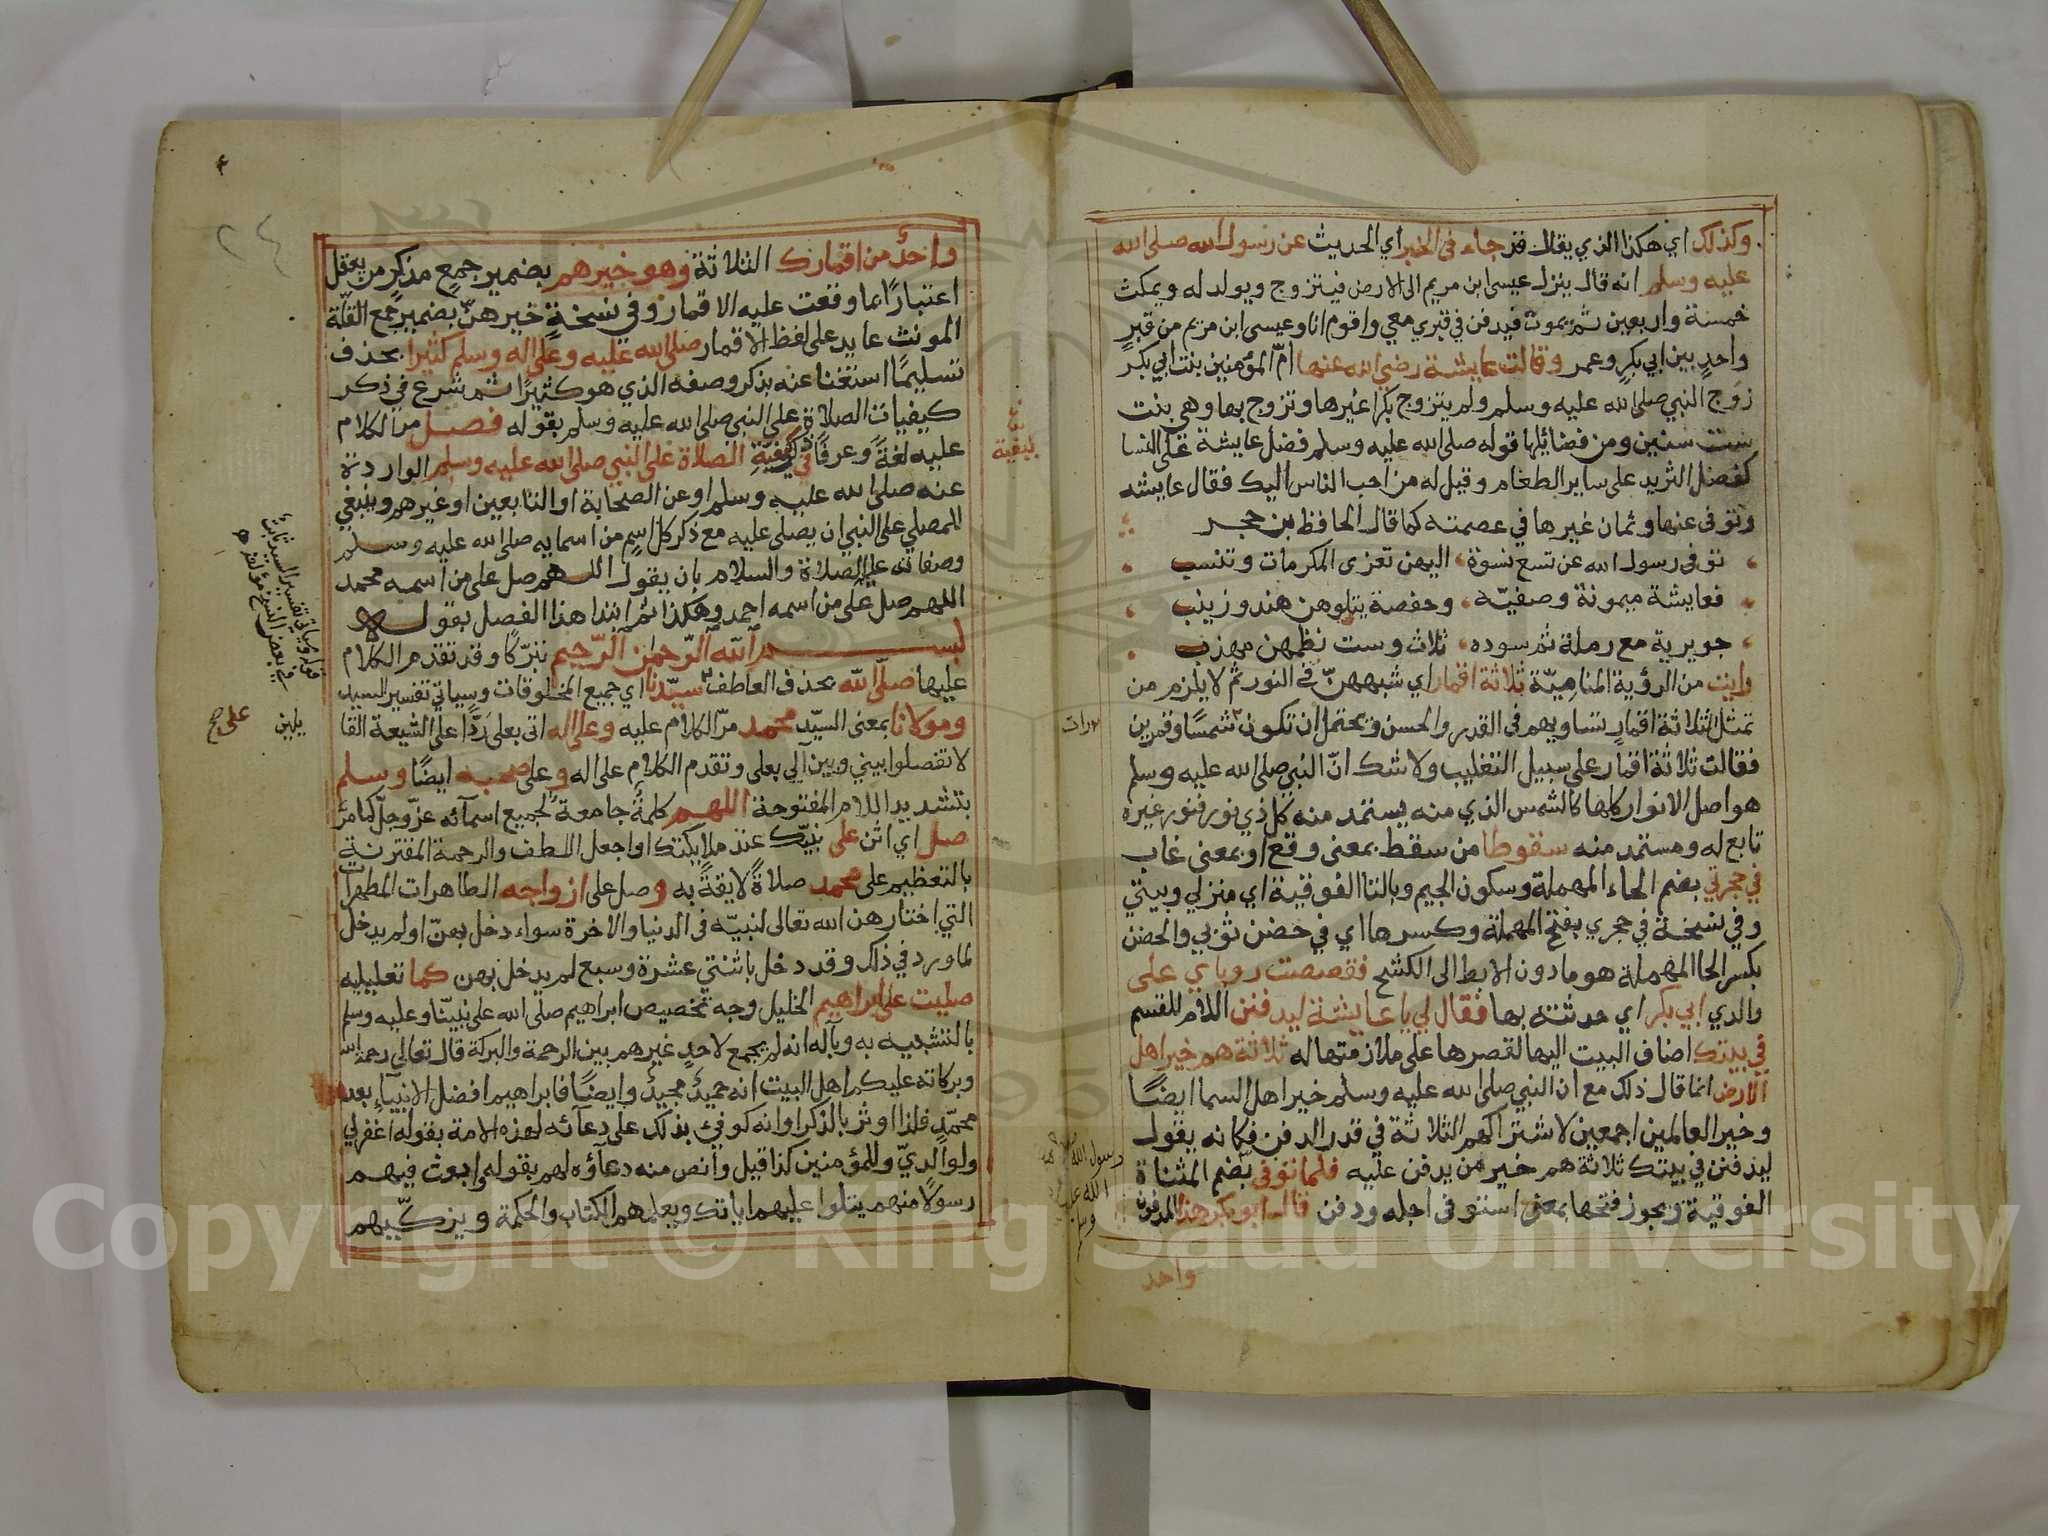 وكذلك اي هكذا الذي يقال قد جاء في الخبر اي الحديث عن رسول الله صلى الله
عليه وسلم انه قال ينزل عيسى ابن مريم الى الارض فيتزوج ويولد له ويمكث
خمسة واربعين ثم يموت فيدفن في قبري معي واقوم انا وعيسى ابن مريم من قبر
واحد بين ابي بكر وعمر وقالت عايشة رضي الله عنها امّ المؤمنين بنت ابي بكر
زوج النبي صلى الله عليه وسلم ولم يتزوج بكرا غيرها وتزوج بها وهي بنت
ست سنين ومن فضائلها قوله صلى الله عليه وسلم فضل عايشة على النسا
كفضل الثريد على ساير الطعام وقيل له من احب الناس اليك فقال عايشه
وتوفى عنها وثمان غيرها في عصمته كما قال الحافظ بن حجر
توفى رسول الله عن تسع نسوة اليهن تعزى المكرمات وتنسب
فعايشة ميمونة وصفيّه وحفصة يتلوهن هند وزينب
جويرية مع رملة ثم سوده ثلاث وست نظمهن مهذب
رايت من الرؤية المناميّة ثلاثة اقمار اي شبههنّ في النور ثم لا يلزم من
تمثل ثلاثة اقمار تساويهم في القدر والحسن ويحتمل ان تكون شمسًا وقمرين
فقالت ثلاثة اقمار على سبيل التغليب ولا شك انّ النبي صلى الله عليه وسلم
هو اصل الانوار كلها كالشمس الذي منه يستمد منه كل ذي نور فنور غيره
تابع له ومستمد منه سقوطا من سقط بمعنى وقع او بمعنى غاب
في حجرتي بضم الحاء المهملة وسكون الجيم وبالتا الفوقية اي منزلي وبيتي
وفي نسخة في حجري بفتح المهملة وكسرها اي في حضن ثوبي والحضن
بكسر الحا المهملة هو ما دون الابط الى الكشح فقصصت روياي على
والدي ابي بكر اي حدثته بها فقال لي يا عايشة ليدفنن اللام للقسم
في بيتك اضاف البيت اليها لقصرها على ملازمتها له ثلاثة هم خير اهل
الارض انما قال ذلك مع ان النبي صلى الله عليه وسلم خير اهل السما ايضًا
وخير العالمين اجمعين لاشتراكهم الثلاثة في قدر الدفن فكانه يقول
ليدفنن في بيتك ثلاثة هم خير من يدفن عليه فلما توفى بضم المثناة
الفوقية ويجوز فتحها بمعنى استوفى اجله ودفن قال ابو بكر هذا المدفون
واحد
رسول الله صلى
الله عليه
وسلم
واحدٌ من اقمارك الثلاثة وهو خيرهم بضمير جمع مذكر من يعقل
اعتبارًا بما وقعت عليه الاقمار وفي نسخة خيرهنّ بضمير جمع القلّة
المونث عايد على لفظ الاقمار صلى الله عليه وعلى اله وسلم كثيرا بحذف
تسليمًا استغنا عنه بذكر وصفه الذي هو كثيرًا ثم شرع في ذكر
كيفيات الصلاة على النبي صلى الله عليه وسلم بقوله فصل مرّ الكلام
عليه لغةً وعرفًا في كيفيّة الصلاة على النبي صلى الله عليه وسلم الواردة
عنه صلى الله عليه وسلم او عن الصحابة او التابعين او غيرهم وينبغي
للمصلي على النبي ان يصلي عليه مع ذكر كل اسم من اسمايه صلى الله عليه وسلم
وصفاته عليه الصلاة والسلام بان يقول اللهم صل على من اسمه محمد
اللهم صل على من اسمه احمد وهكذا ثم ابتدا هذا الفصل بقوله
بسم الله الرحمن الرحيم تبرّكًا وقد تقدم الكلام
عليها صلّى الله بحذف العاطف سيّدنا اي جميع المخلوقات وسياتي تفسير السيد
ومولانا بمعنى السيّد محمد مرّ الكلام عليه وعلى اله اتى بعلى ردًّا على الشيعة القا
لا تفصلوا بيني وبين آلي بعلى وتقدم الكلام على اله وعلى صحبه ايضًا وسلم
بتشديد اللام المفتوحة اللهم كلمةٌ جامعة لجميع اسمآئه عزّ وجلّ كما مرّ
صل اي اثن على نبيّك عند ملايكتك او اجعل اللطف والرحمة المقترنة
بالتعظيم على محمد صلاةً لايقةً به وصل على ازواجه الطاهرات المطهرات
التي اختارهن الله تعالى لنبيّه في الدنيا والاخرة سواء دخل بهنّ او لم يدخل
لما ورد في ذلك وقد دخل باثنتي عشرة وسبع لم يدخل بهن كما تعليليه
صليت على ابراهيم الخليل وجه تخصيص ابراهيم صلى الله على نبيّنا وعليه وسلم
بالتشبيه به وبآله انه لم يجمع لاحدٍ غيرهم بين الرحمة والبركة قال تعالى رحمة الله
وبركاته عليكم اهل البيت انه حميدٌ مجيدٌ وايضًا فابراهيم افضل الانبيآء بعد
محمّد فلذا اوثر بالذكر او انه كوفئ بذلك على دعآئه لهذه الامة بقوله اغفر لي
ولوالديّ وللمؤمنين كذا قيل وانص منه دعآؤه لهم بقوله وابعث فيهم
رسولاً منهم يتلوا عليهم اياتك ويعلمهم الكتاب والحكمة ويزكّيهم
يلين
على صح
Copyright © King Saud University